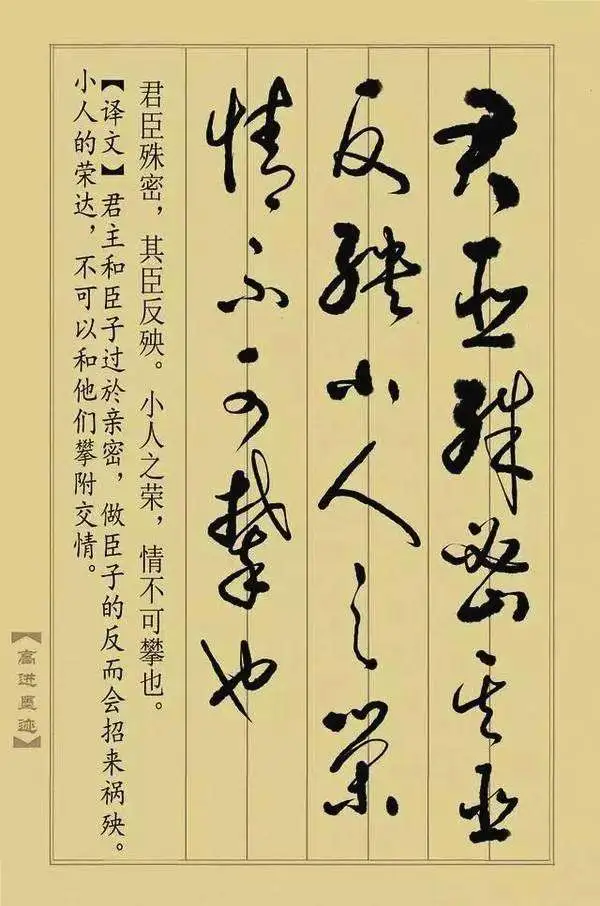 君臣殊密其臣
反殃小人之荣
情不可攀也
君臣殊密，其臣反殃。小人之荣，情不可攀也。
【译文】君主和臣子过於亲密，做臣子的反而会招来祸殃。
小人的荣达，不可以和他们攀附交情。
【高进墨迹】